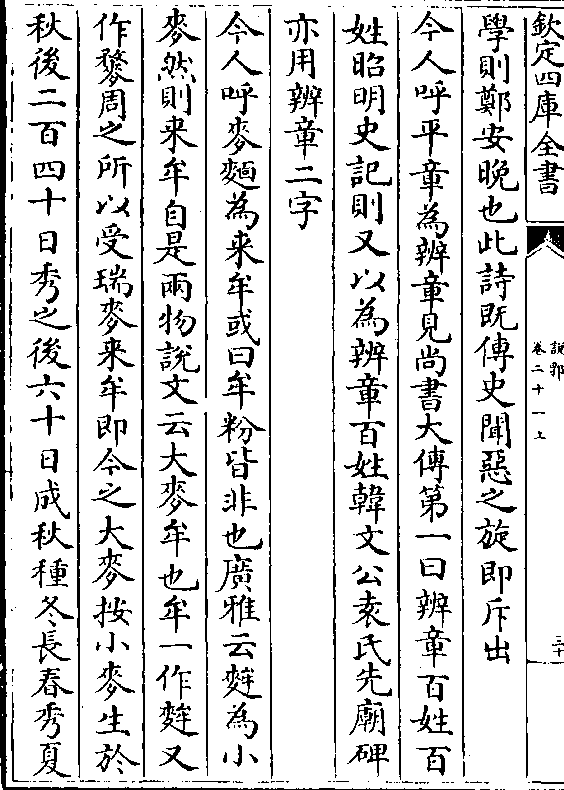 欽定四庫全書
説郛
卷二十一上
三十
學則鄭安晚也此詩既傳史聞惡之旋即斥出
今人呼平章為辨章見尚書大傳第一曰辨章百姓百
姓昭明史記則又以為辨章百姓韓文公袁氏先廟碑
亦用辨章二字
今人呼麥麵為来牟或曰牟粉皆非也廣雅云䅘為小
麥然則来牟自是兩物說文云大麥牟也牟一作麰又
作䵄周之所以受瑞麥来牟即今之大麥按小麥生於
秋後二百四十日秀之後六十日成秋種冬長春秀夏